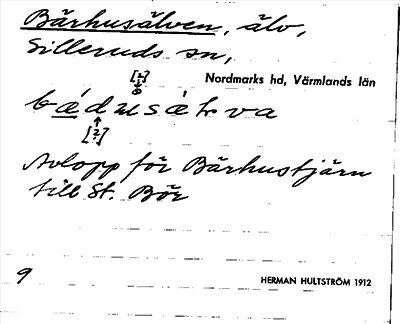 Bärhusälven, älv,
Silleruds sn,
[?]
Nordmarks hd, Värmlands län
[?]
Avlopp för Bärhustjärn
till St. Bör
9
HERMAN HULTSTRÖM 1912